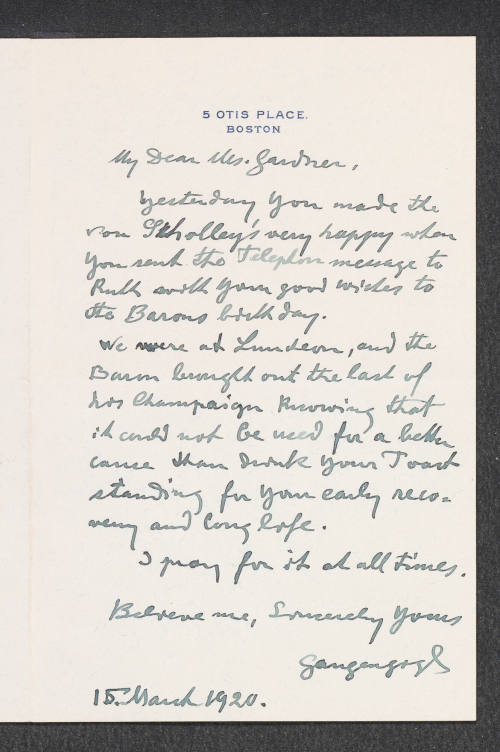 5 OTIS PLACE.
BOSTON
My Dear Mrs. Gardner,
Yesterday You made the
von Scholley's very happy when
You sent the Telephon message to
Ruth with Your good wishes to
the Barons birthday.
We were at Luncheon, and the
Baron brought out the last of
his Champaign Knowing that
it could not be used for a better
cause than drink Your Toast
standing for Your early reco=
very and long life.
I pray for it at all times.
Believe me, Sincerely Yours
Gaugengigl
15. March 1920.